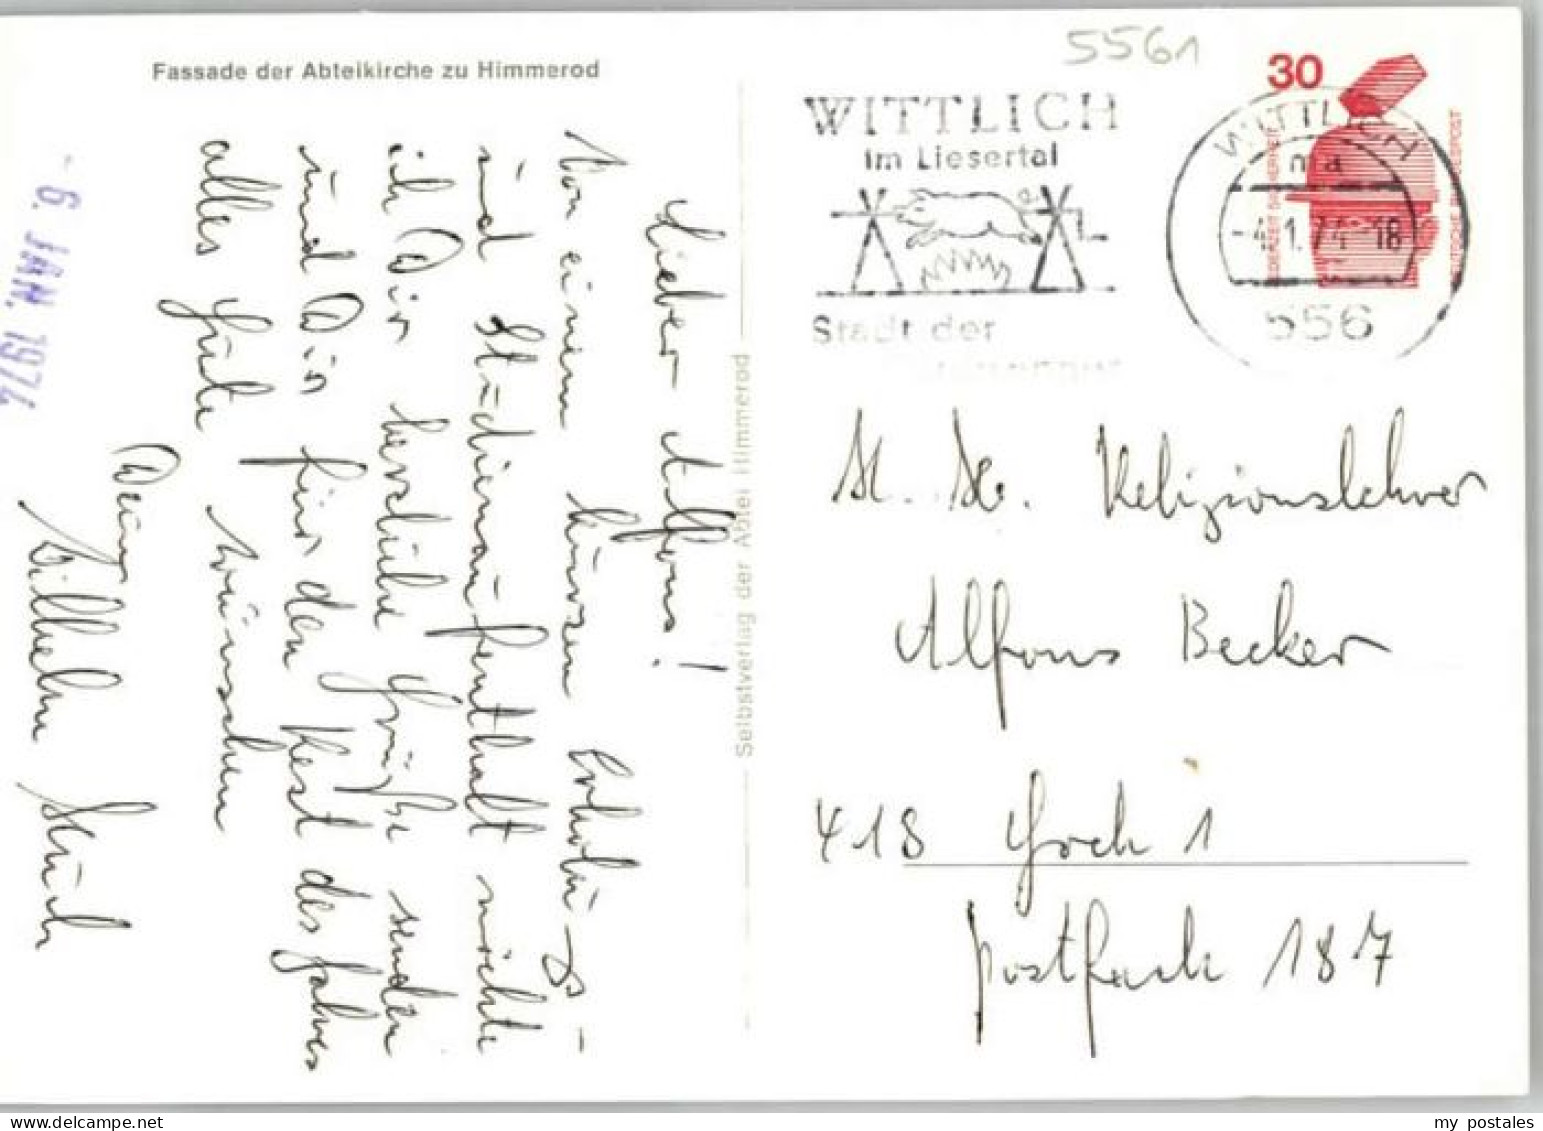 Fassade der Abteikirche zu Himmerod
5561
30
WITTLICH
im Liesertal
Stadt der
WITTLICH
ma
-4.1.74-18
556
JEDERZEIT SICHERHEIT
DEUTSCHE BUNDESPOST
- 6. JAN. 1974
Selbstverlag der Abtei Himmerod
Lieber Alfons!
Von einem kurzen Erholungs-
und Studienaufenthalt möchte
ich Dir herzliche Grüße senden
und Dir für den Rest des Jahres
alles Gute wünschen
Dein
Wilhelm
H. H. Religionslehrer
Alfons Becker
418 Goch 1
Postfach 187
my postales